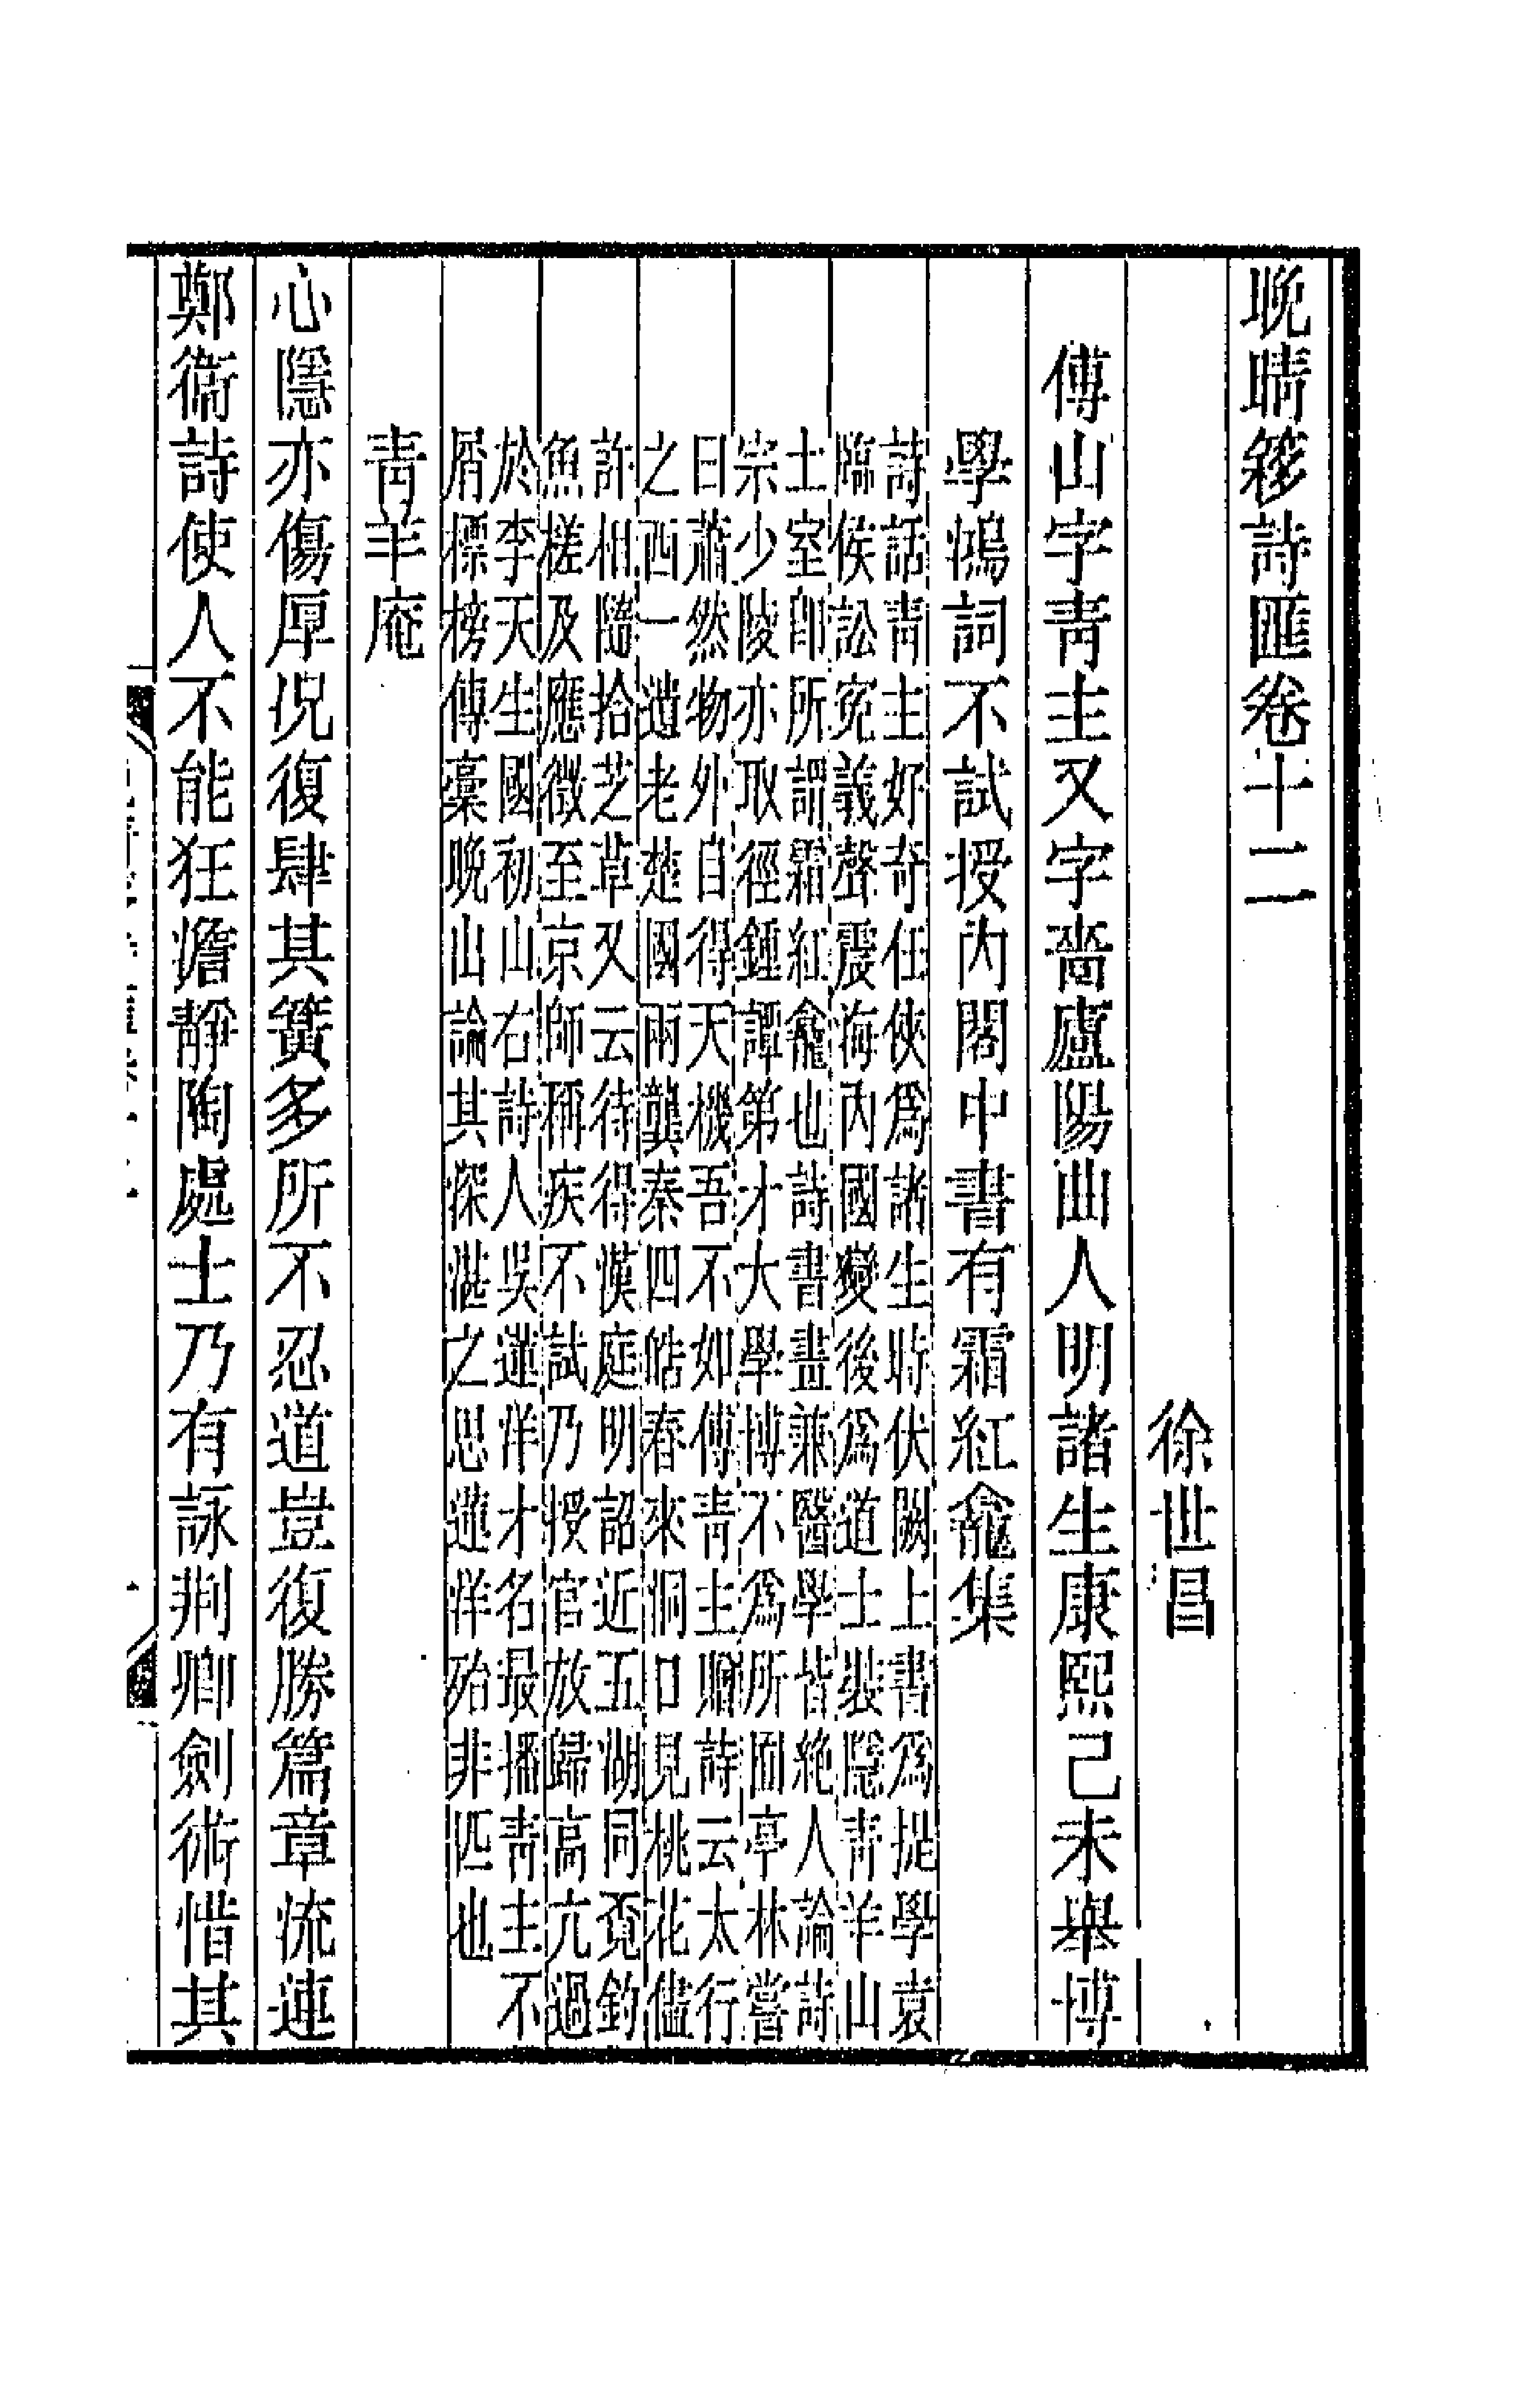 晚晴簃詩匯卷十二
徐世昌
傅山字青主又字嗇廬陽曲人明諸生康熙己未舉博
學鴻詞不試授內閣中書有霜紅龕集
詩話青主好奇任俠爲諸生時伏闕上書爲提學袁
臨侯訟冤義聲震海內國變後爲道士裝隱青羊山
土室卽所謂霜紅龕也詩書畫兼醫學皆絕人論詩
宗少陵亦取徑鍾譚第才大學博不爲所囿亭林嘗
曰蕭然物外自得天機吾不如傅青主贈詩云太行
之西一遺老楚國兩龔秦四皓春來洞口見桃花儻
許相隨拾芝草又云待得漢庭明詔近五湖同覓釣
魚槎及應徵至京師稱疾不試乃授官放歸高亢過
於李天生國初山右詩人吳蓮洋才名最播青主不
屑標榜傳稾晚出論其深湛之思蓮洋殆非匹也
青羊庵
心隱亦傷厚況復肆其簧多所不忍道豈復勝篇章流連
鄭衞詩使人不能狂澹靜陶處士乃有詠荆卿劍術惜其